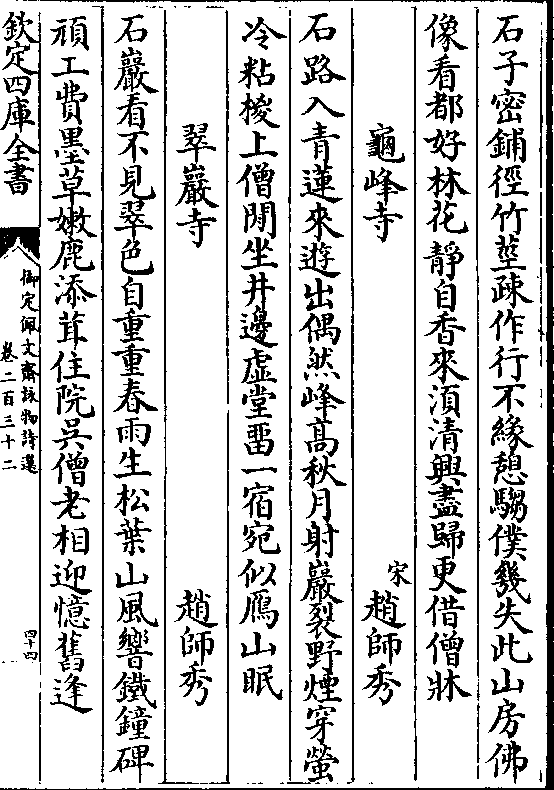 石子密鋪徑竹莖疎作行不緣憩騶僕幾失此山房佛
像看都好林花靜自香來須清興盡歸更借僧牀
龜峰寺 宋 趙師秀
石路入青蓮來遊出偶然峰髙秋月射巖裂野煙穿螢
冷粘椶上僧閒坐井邊虛堂畱一宿宛似鴈山眠
翠巖寺 趙師秀
石巖看不見翠色自重重春雨生松葉山風響鐵鐘碑
頑工費墨草嫩鹿添茸住院吳僧老相迎憶舊逢
欽定四庫全書
御定佩文齋詠物詩選
卷二百三十二
四十四